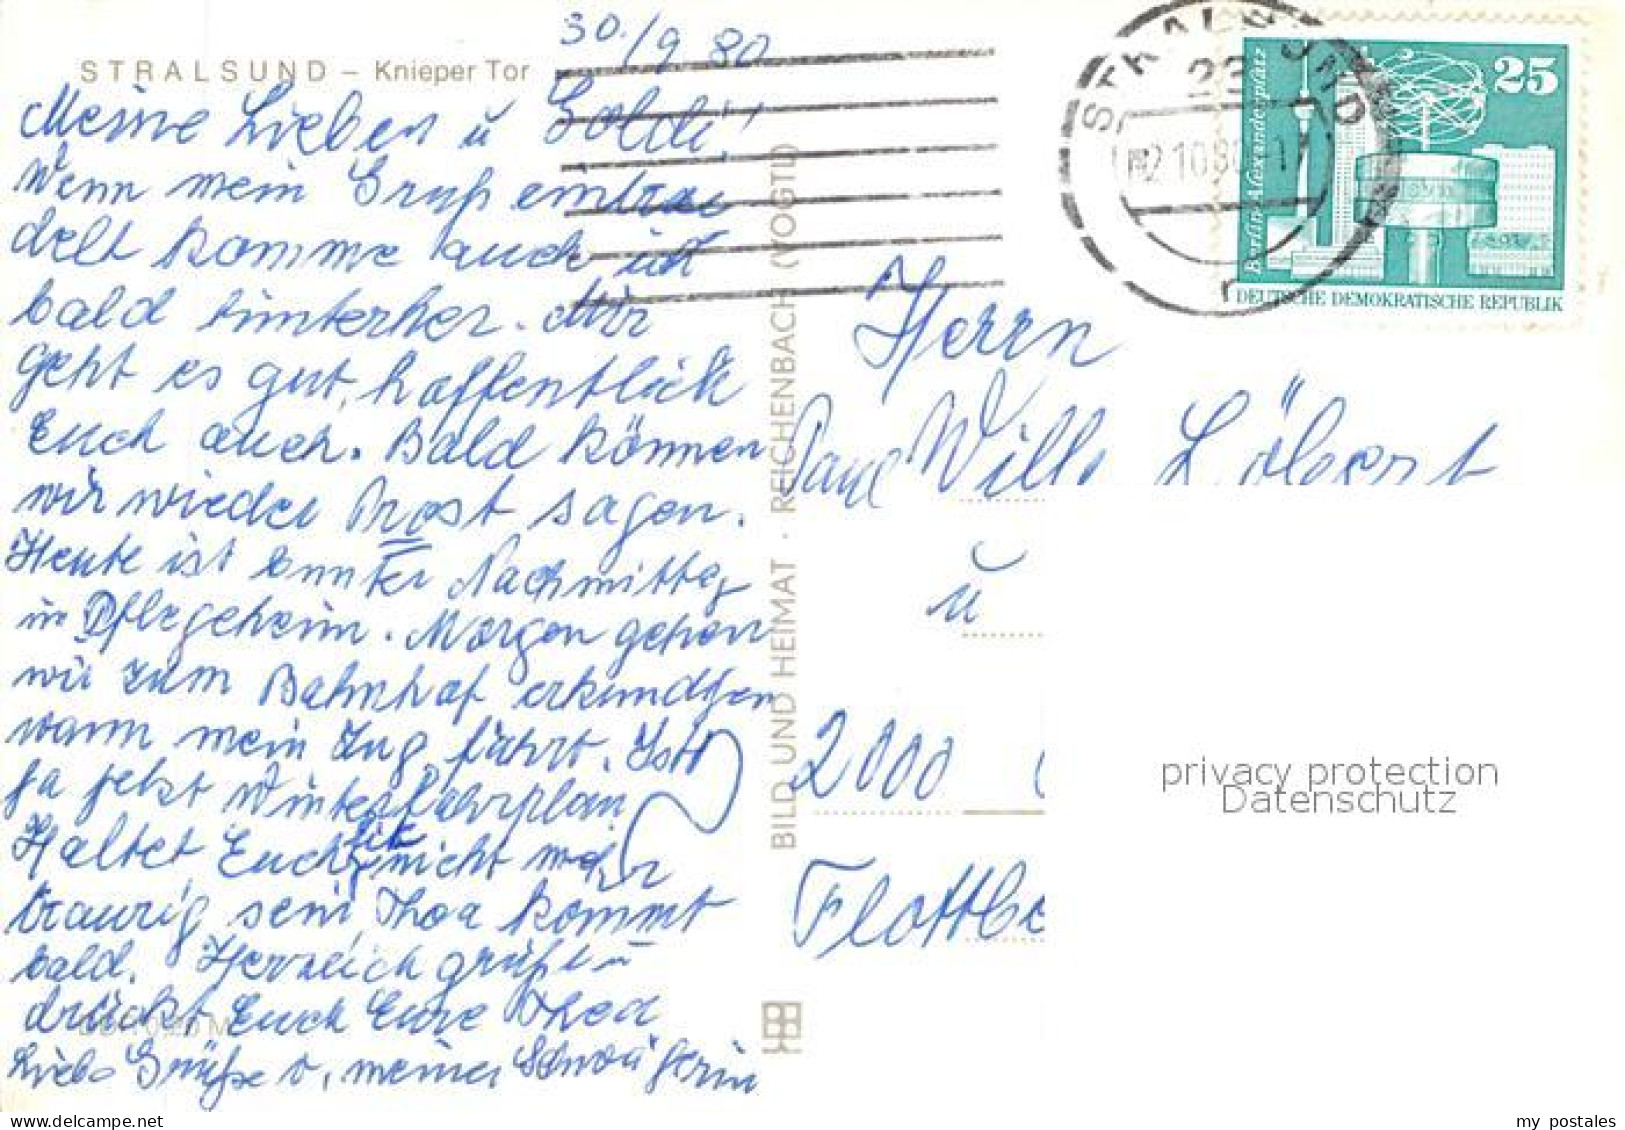 30./9 80
STRALSUND – Knieper Tor
Meine Lieben u Goldi!
Wenn mein Gruß eintru
delt komme auch ich
bald hinterher. Mir
geht es gut, hoffentlich
Euch auch. Bald können
wir wieder Prost sagen.
Heute ist bunter Nachmittag
im Pflegeheim. Morgen gehen
wir zum Bahnhof erkundigen
wann mein Zug fährt. Ist
ja jetzt Winterfahrplan
Haltet Euch fit nicht mehr
traurig sein, Thea kommt
bald. Herzlich grüßt u
drückt Euch Eure Thea
Liebe Grüße v. meiner Schwägerin
BILD UND HEIMAT · REICHENBACH (VOGTL)
STRALSUND
23
-2.10.80-17
r
25
Berlin-Alexanderplatz
DEUTSCHE DEMOKRATISCHE REPUBLIK
Herrn
Paul Willi Löbert
u
2000
Flottbe
privacy protection
Datenschutz
my postales